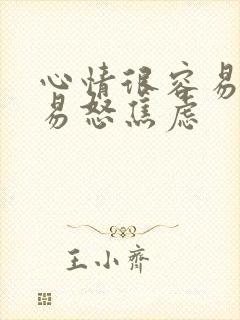 心情很容易
易怒焦虑
王小齊